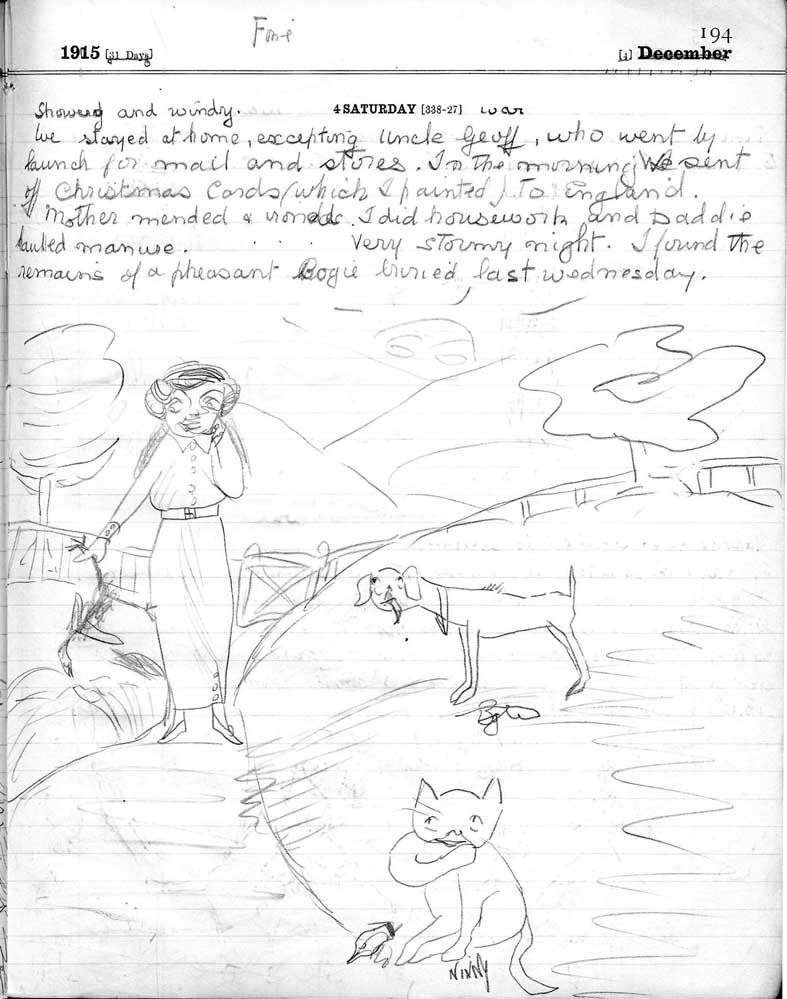 194
1915 [31 Days]
[4] December
4 SATURDAY [338-27] war
Showery and windy.
We stayed at home, excepting Uncle Geoff, who went by
launch for mail and stores. In the morning we sent
off Christmas Cards (which I painted) to England.
Mother mended & ironed. I did housework and Daddie
hauled manure. . . . . Very stormy night. I found the
remains of a pheasant Bogie buried last wednesday.
NINNY